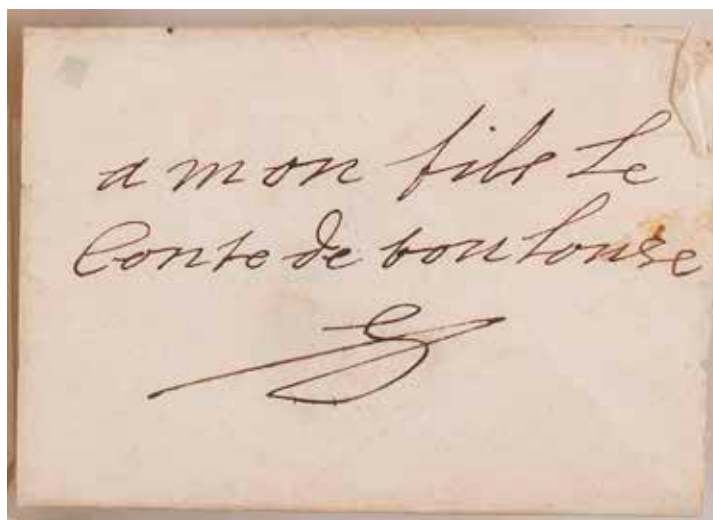 a mon fils Le
Conte de toulouse